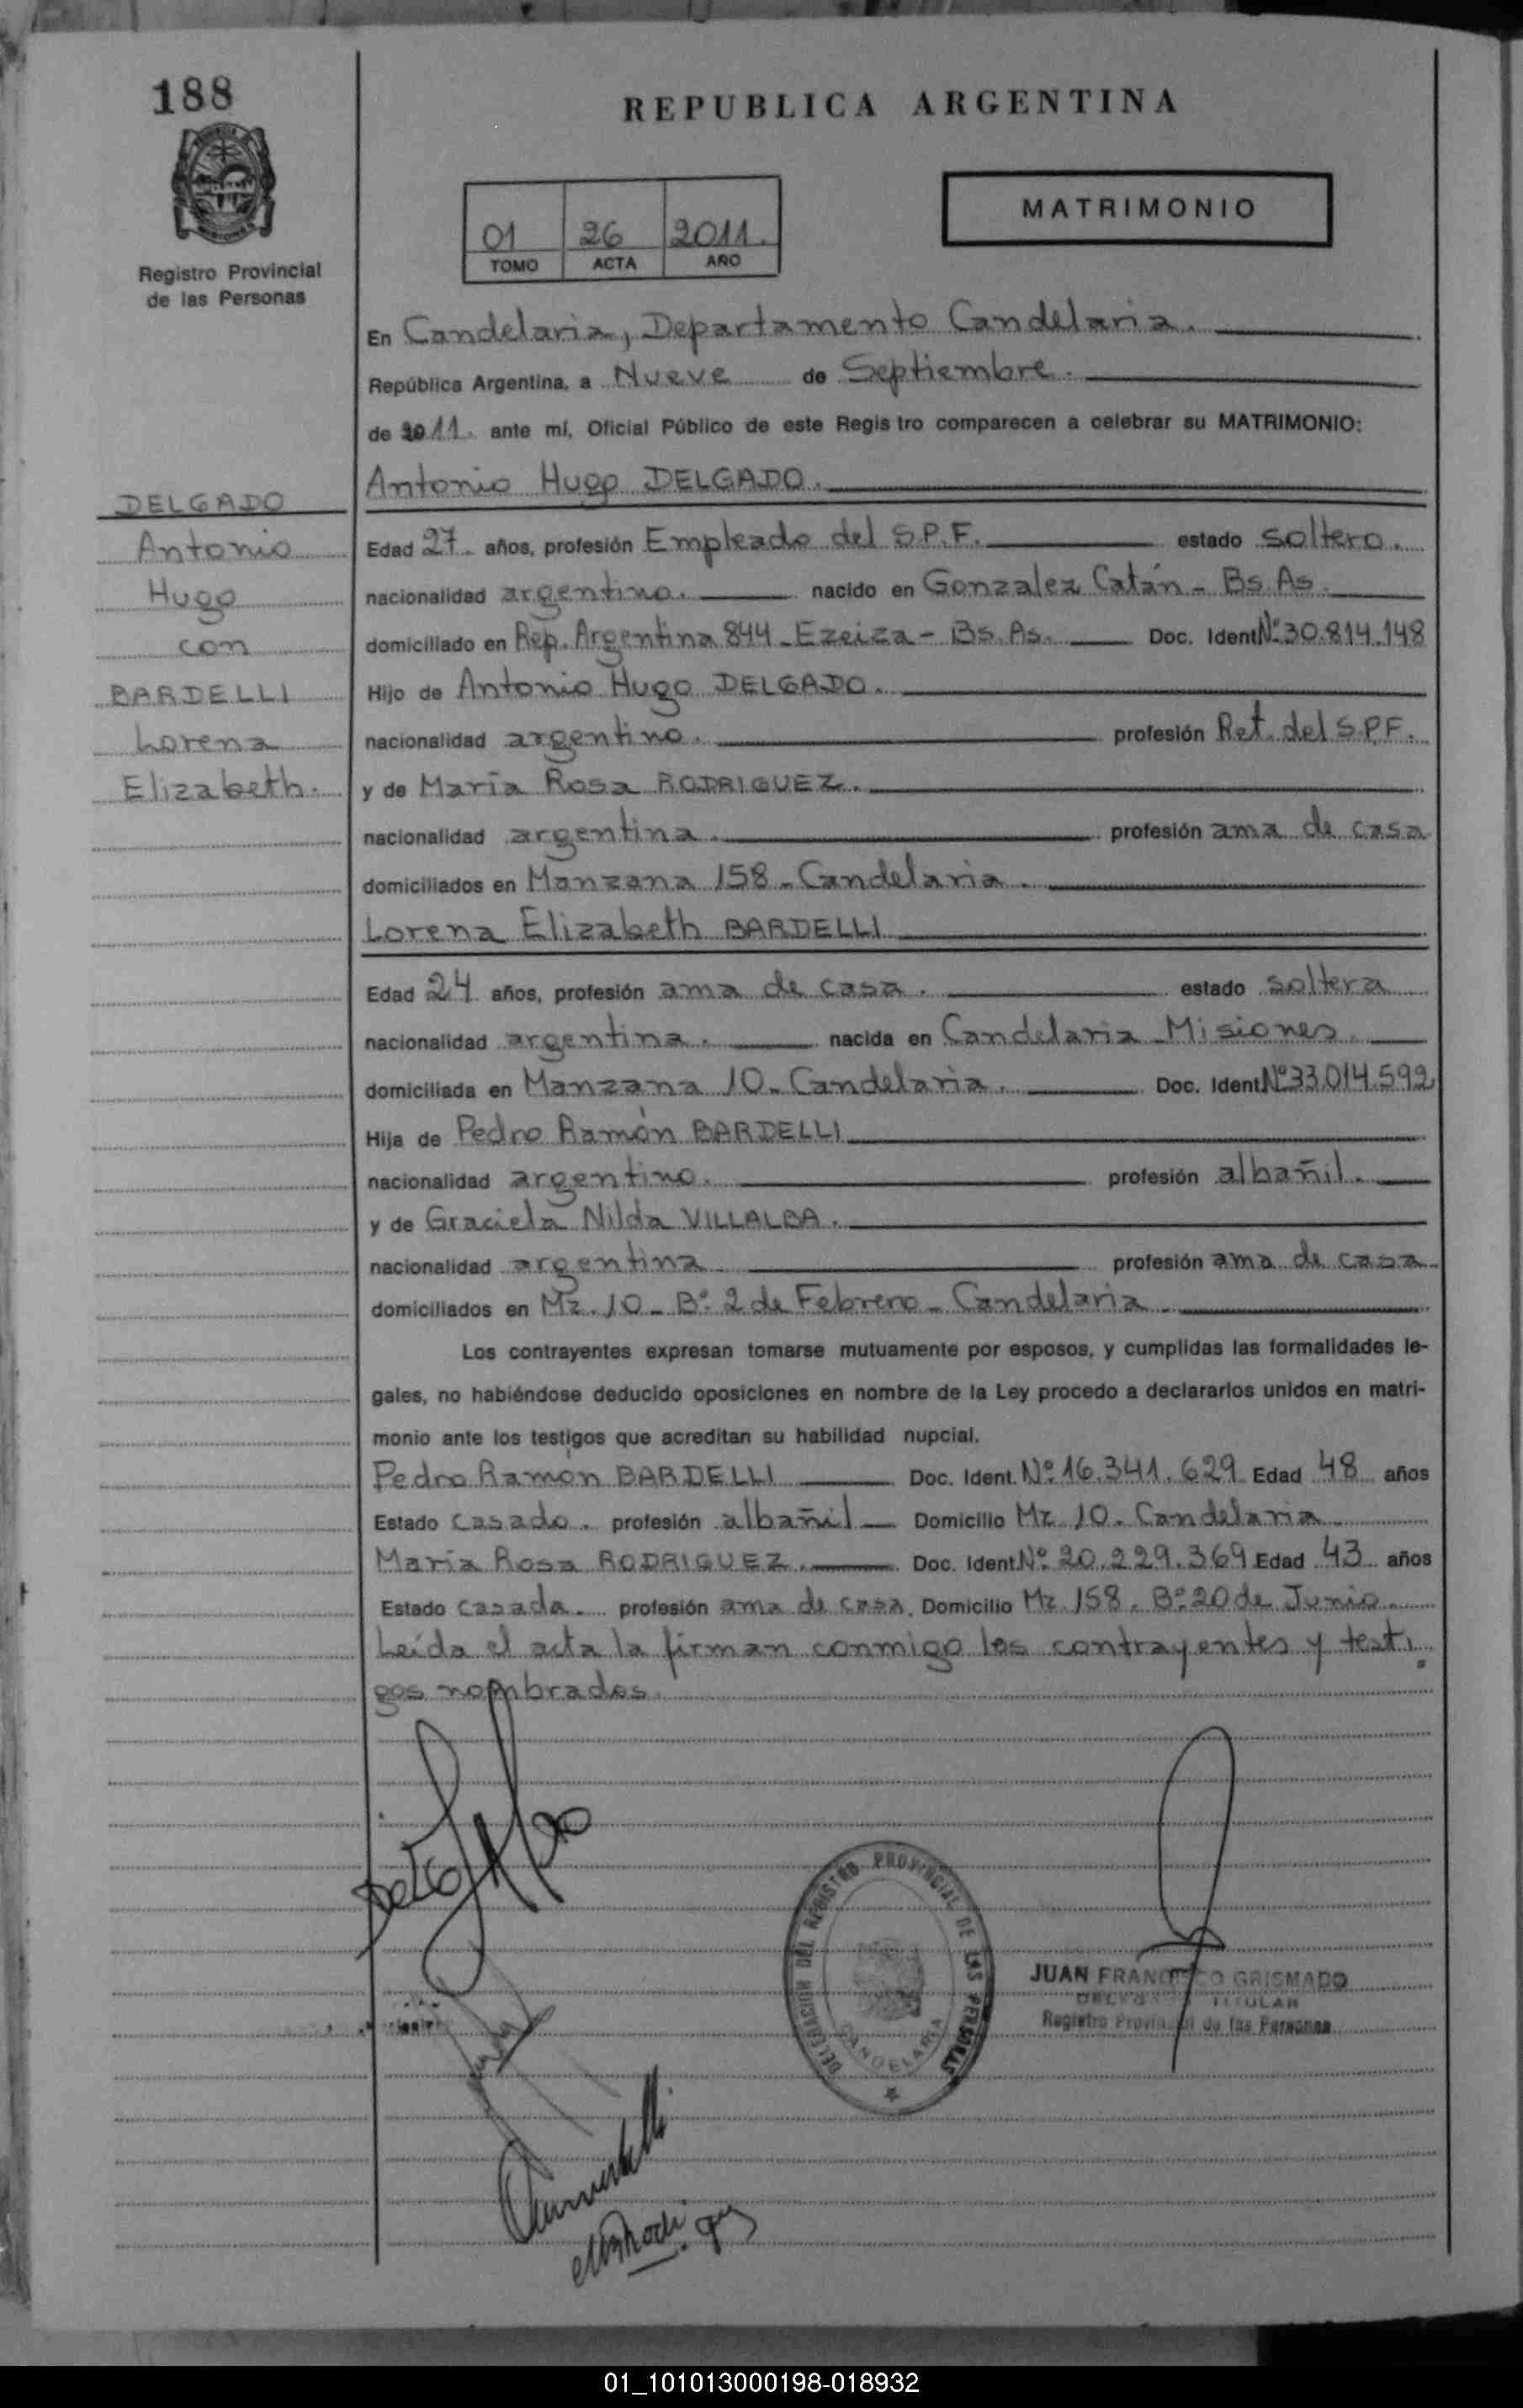 188
REPUBLICA ARGENTINA
MATRIMONIO
01 26 2011.
TOMO ACTA AÑO
Registro Provincial
de las Personas
En Candelaria, Departamento Candelaria.
República Argentina, a Nueve de Septiembre.
de 2011. ante mí, Oficial Público de este Regis tro comparecen a celebrar su MATRIMONIO:
Antonio Hugo DELGADO.
DELGADO
Antonio
Hugo
con
BARDELLI
Lorena
Elizabeth.
Edad 27. años, profesión Empleado del S.P.F. estado soltero.
nacionalidad argentino. nacido en Gonzalez Catán - Bs. As.
domiciliado en Rep. Argentina 844 - Ezeiza - Bs. As. Doc. Ident. Nº 30.814.148
Hijo de Antonio Hugo DELGADO.
nacionalidad argentino. profesión Ret. del S.P.F.
y de María Rosa RODRIGUEZ.
nacionalidad argentina. profesión ama de casa
domiciliados en Manzana 158 - Candelaria.
Lorena Elizabeth BARDELLI
Edad 24. años, profesión ama de casa. estado soltera
nacionalidad argentina. nacida en Candelaria - Misiones.
domiciliada en Manzana 10 - Candelaria. Doc. Ident. Nº 33.014.592
Hija de Pedro Ramón BARDELLI
nacionalidad argentino. profesión albañil.
y de Graciela Nilda VILLALBA.
nacionalidad argentina profesión ama de casa.
domiciliados en Mz. 10 - Bº. 2 de Febrero - Candelaria
Los contrayentes expresan tomarse mutuamente por esposos, y cumplidas las formalidades le-
gales, no habiéndose deducido oposiciones en nombre de la Ley procedo a declararlos unidos en matri-
monio ante los testigos que acreditan su habilidad nupcial.
Pedro Ramón BARDELLI Doc. Ident. Nº 16.341.629 Edad 48 años
Estado casado. profesión albañil Domicilio Mz. 10 - Candelaria
María Rosa RODRIGUEZ. Doc. Ident. Nº 20.229.369 Edad 43 años
Estado casada. profesión ama de casa. Domicilio Mz. 158. Bº. 20 de Junio
Leída el acta la firman conmigo los contrayentes y testi
gos nombrados.
DELEGACION DEL REGISTRO PROVINCIAL DE LAS PERSONAS
CANDELARIA
JUAN FRANCISCO GRISMADO
TITULAR
Registro Provincial de las Personas
01_101013000198-018932